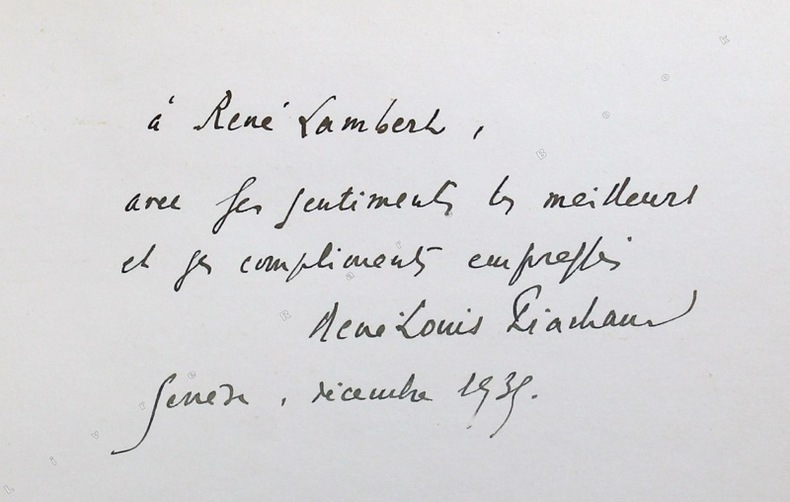 à René Lambert,
avec ses sentiments les meilleurs
et ses compliments empressés
René-Louis Piachaud
Genève, décembre 1939.